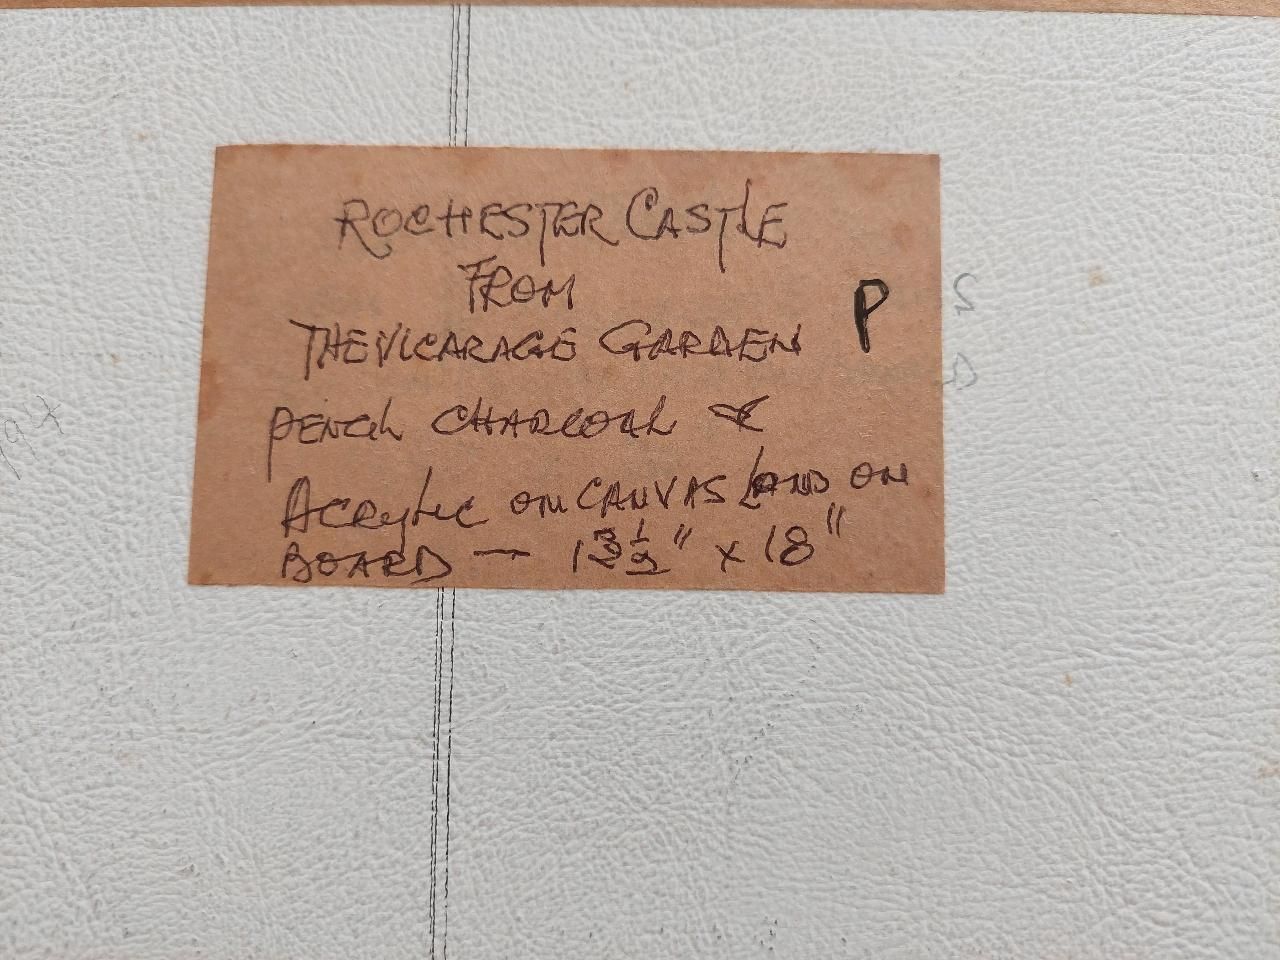 ROCHESTER CASTLE
FROM
THE VICARAGE GARDEN
P
PENCIL CHARCOAL &
ACRYLIC ON CANVAS LAID ON
BOARD — 13½" x 18"